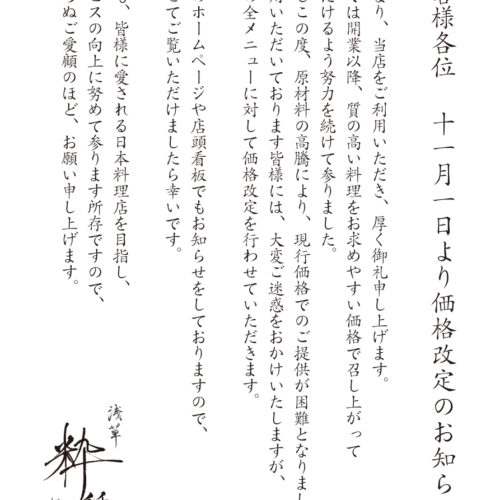 客様各位　十一月一日より価格改定のお知ら
より、当店をご利用いただき、厚く御礼申し上げます。
は開業以降、質の高い料理をお求めやすい価格で召し上がって
だけるよう努力を続けて参りました。
しこの度、原材料の高騰により、現行価格でのご提供が困難となりまし
用いただいております皆様には、大変ご迷惑をおかけいたしますが、
の全メニューに対して価格改定を行わせていただきます。
のホームページや店頭看板でもお知らせをしておりますので、
せてご覧いただけましたら幸いです。
も、皆様に愛される日本料理店を目指し、
ビスの向上に努めて参ります所存ですので、
らぬご愛顧のほど、お願い申し上げます。
浅草
粋